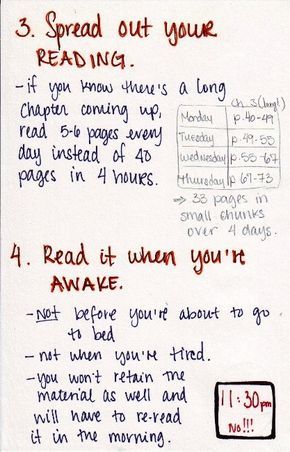 3. Spread out your
READING.
-if you know there's a long
chapter coming up,
read 5-6 pages every
day instead of 40
pages in 4 hours.
Ch. 3 (long!)
Monday p.40-49
Tuesday p.49-55
Wednesday p.55-67
Thursday p.67-73
⇒ 33 pages in
small chunks
over 4 days.
4. Read it when you're
AWAKE.
-NOT before you're about to go
to bed
-not when you're tired.
-you won't retain the
material as well and
will have to re-read
it in the morning.
11:30pm
No!!!